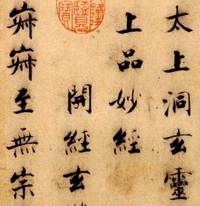 太上洞玄靈
上品妙經
開經玄
寂寂至無宗